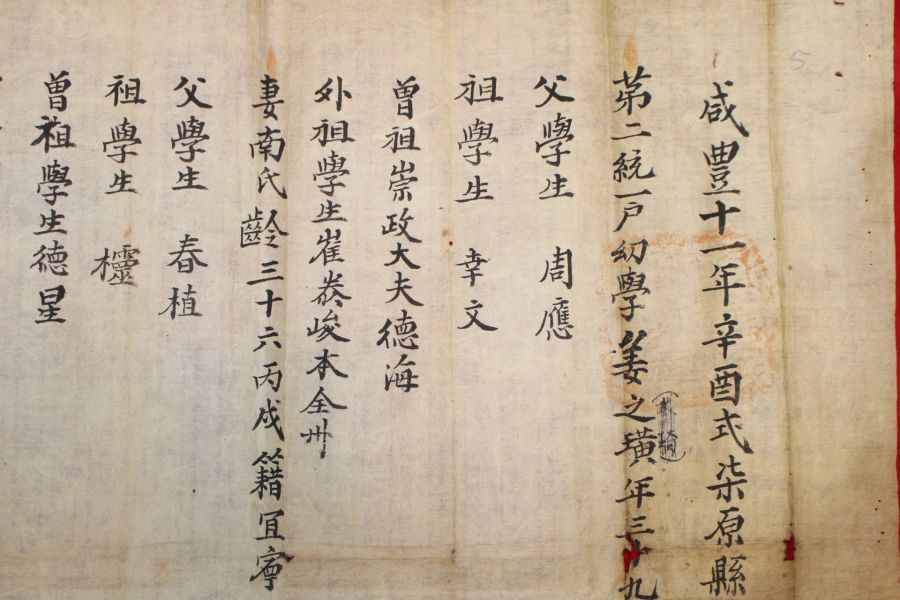 咸豊十一年辛酉式柒原縣
苐二統一戶幼學姜之璜年三十九
父學生 周應
祖學生 幸文
曽祖崇政大夫德海
外祖學生崔泰峻本全州
妻南氏齡三十六丙戌籍冝寧
父學生 春植
祖學生 欞
曽祖學生德星
5